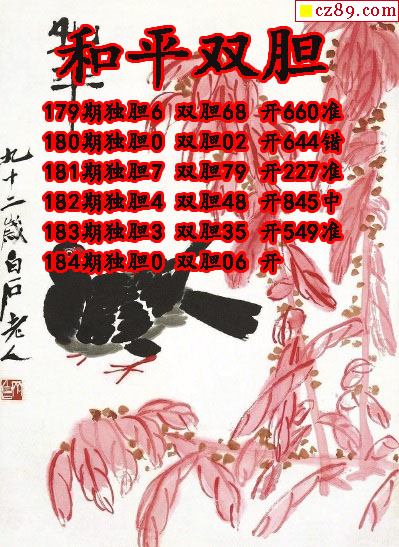 cz89.com
和平双胆
179期独胆6 双胆68 开660准
180期独胆0 双胆02 开644错
181期独胆7 双胆79 开227准
182期独胆4 双胆48 开845中
183期独胆3 双胆35 开549准
184期独胆0 双胆06 开
九十二岁白石老人